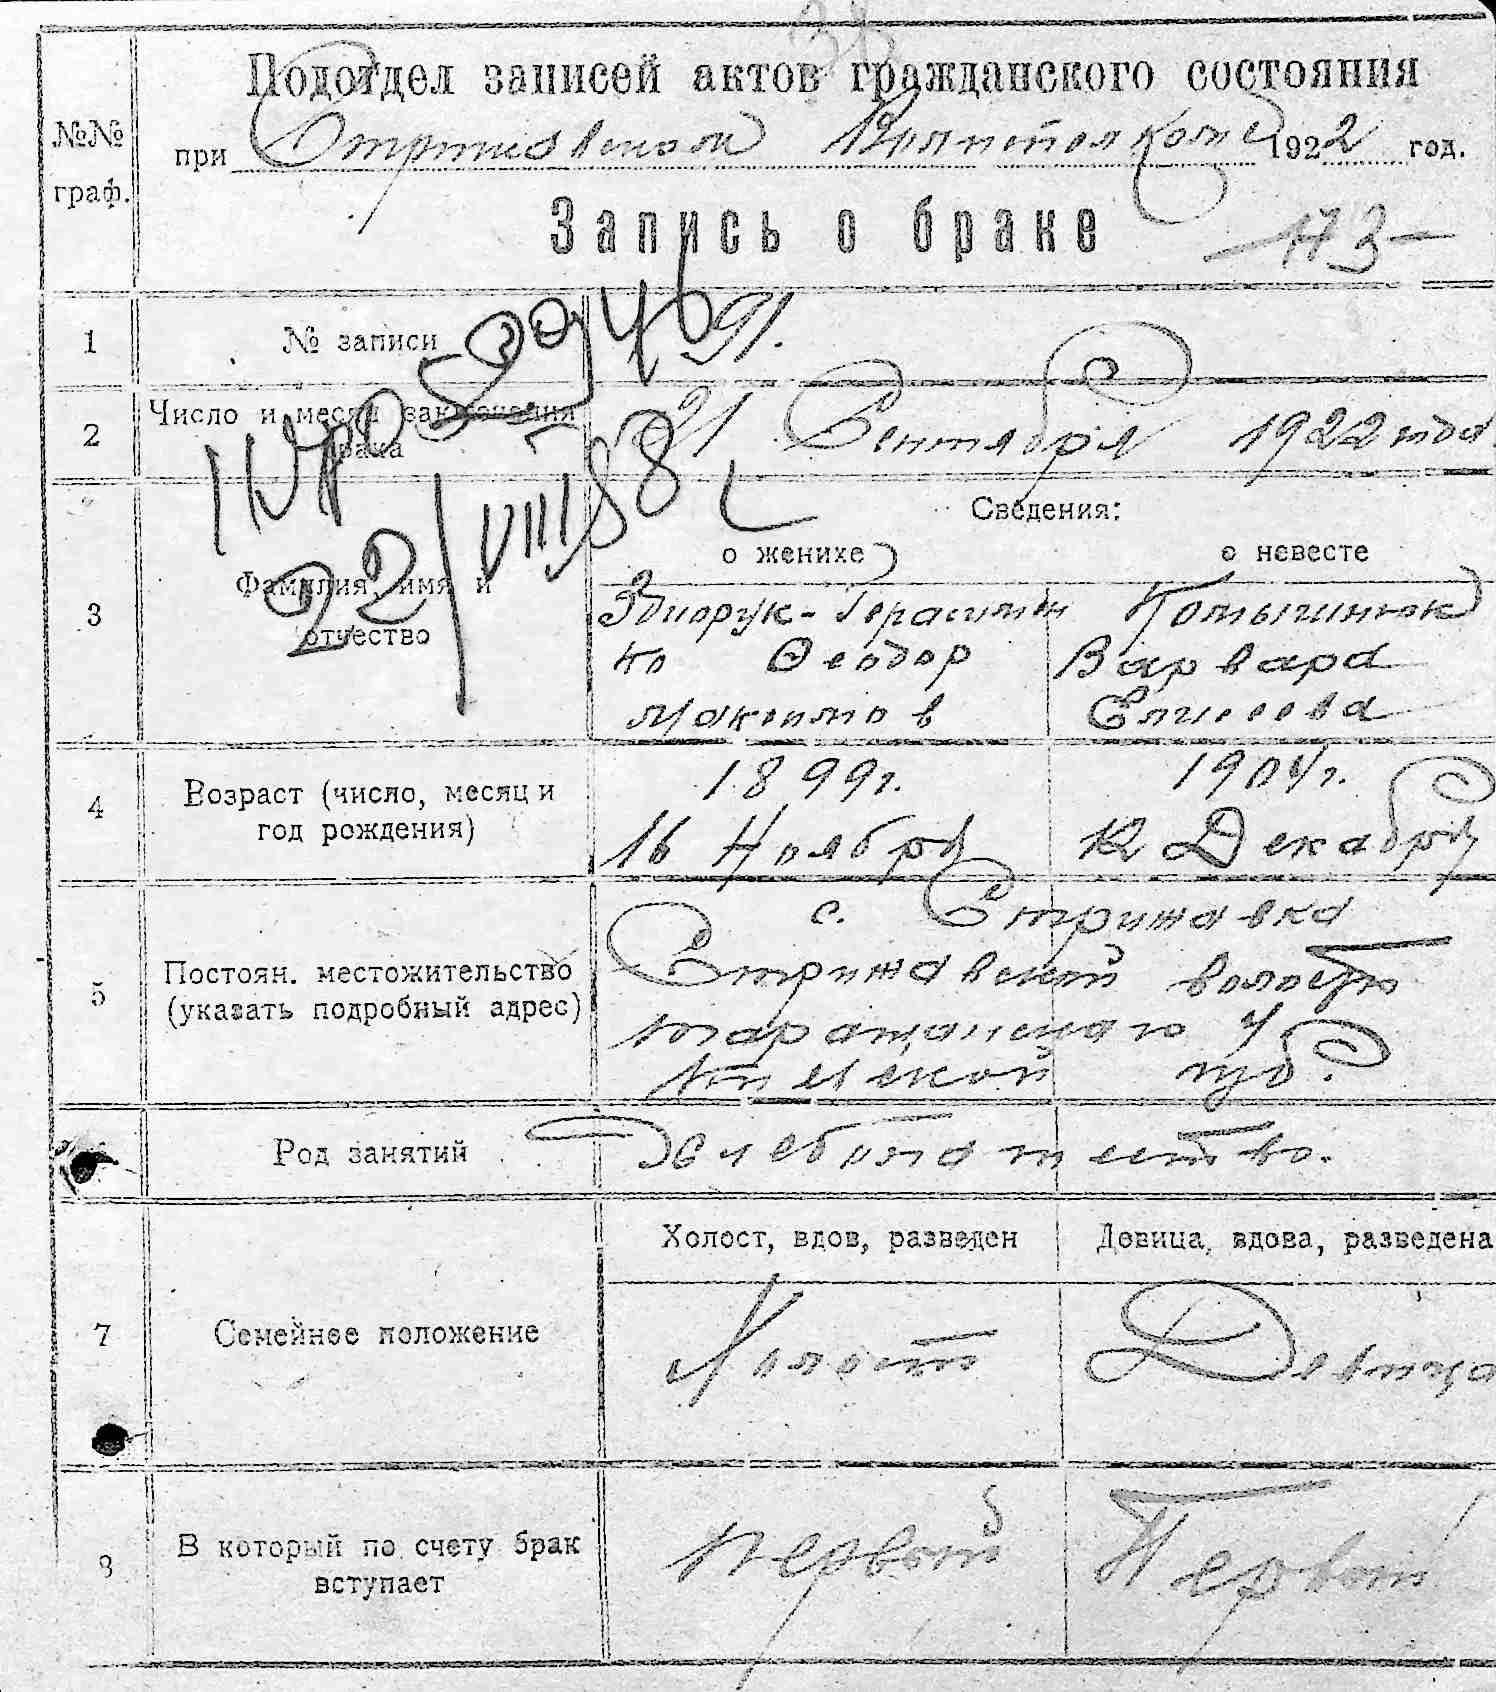 Подотдел записей актов гражданского состояния
№№ граф.
при Стрижовском 1922 год.
Запись о браке
-173-
1 № записи 91.
2 Число и месяц заключения брака 21 Сентября 1922 года
22/VIII 88
Сведения:
о женихе о невесте
3 Фамилия, имя и отчество
Герасимен
ко Феодор Варвара
Максимов Елисеева
4 Возраст (число, месяц и год рождения)
1899г. 1904г.
16 Ноября 12 Декабря
5 Постоян. местожительство (указать подробный адрес)
с. Стрижавка
Стрижавской волости
Таращанского у
Киевской губ.
Род занятий Хлебопашество.
Холост, вдов, разведен Девица, вдова, разведена
7 Семейное положение Холост Девица
8 В который по счету брак вступает Первый Первый